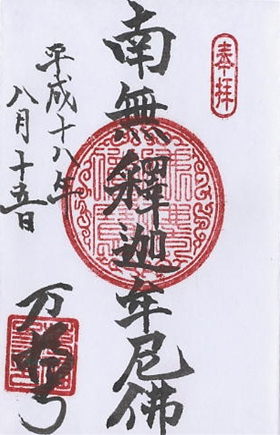 奉拝
南無釋迦牟尼佛
平成十八年
八月十五日
万松寺